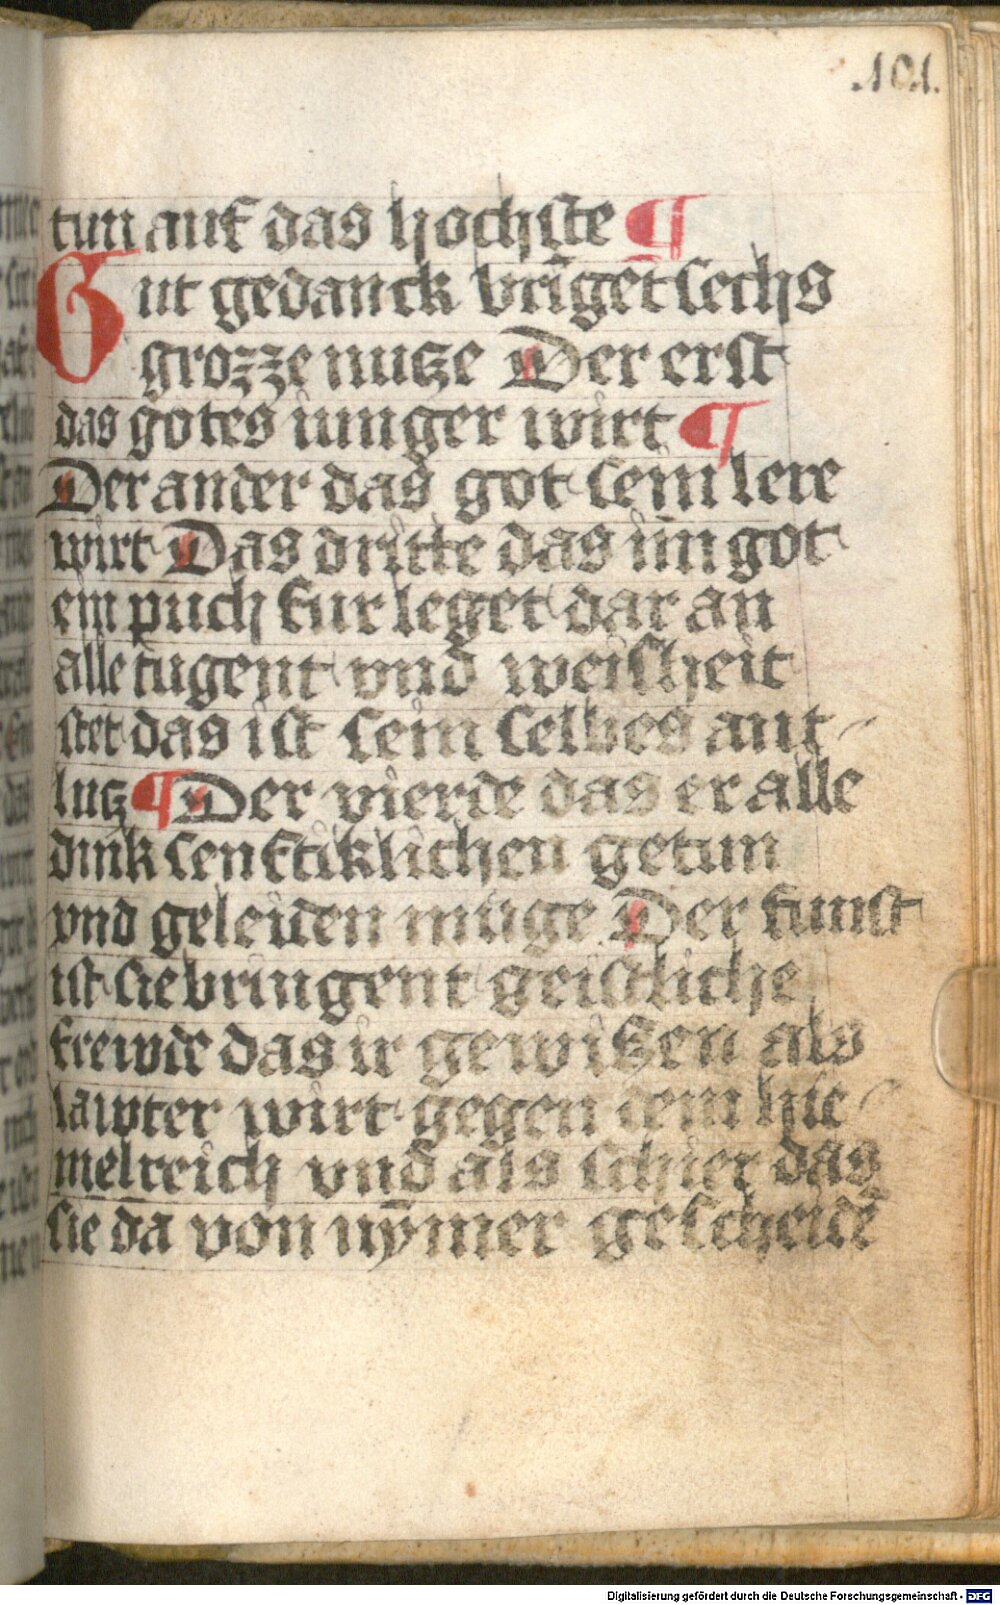 .101.
tun auf das hochste ¶
Gut gedanck brīget sechs
grozze nutze Der erst
das gotes iunger wirt ¶
Der ander das got sein lere
wirt Das dritte das im got
ein puch fur leget dar an
alle tugent vnd weisheit
stet das ist sein selbes ant-
lutz ¶ Der vierde das er alle
dink senftiklichen getun
vnd geleiden muge Der funft
ist sie bringent geistliche
frewde das ir gewissen als
lawter wirt gegen dem hi-
melreich vnd als schier das
sie da von nȳmer gescheidē
Digitalisierung gefördert durch die Deutsche Forschungsgemeinschaft - DFG